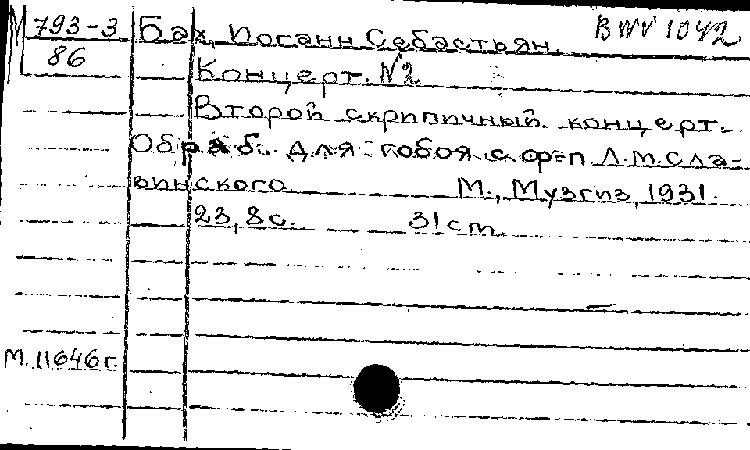 М 793-3 Бах, Иоганн Себастьян. BWV 1042
86 Концерт. №2
Второй скрипичный концерт.
Обраб. для гобоя с ф-п Л.М.Сла-
винского М., Музгиз, 1931.
23, 8с. 31 cm.
М. 11646г.